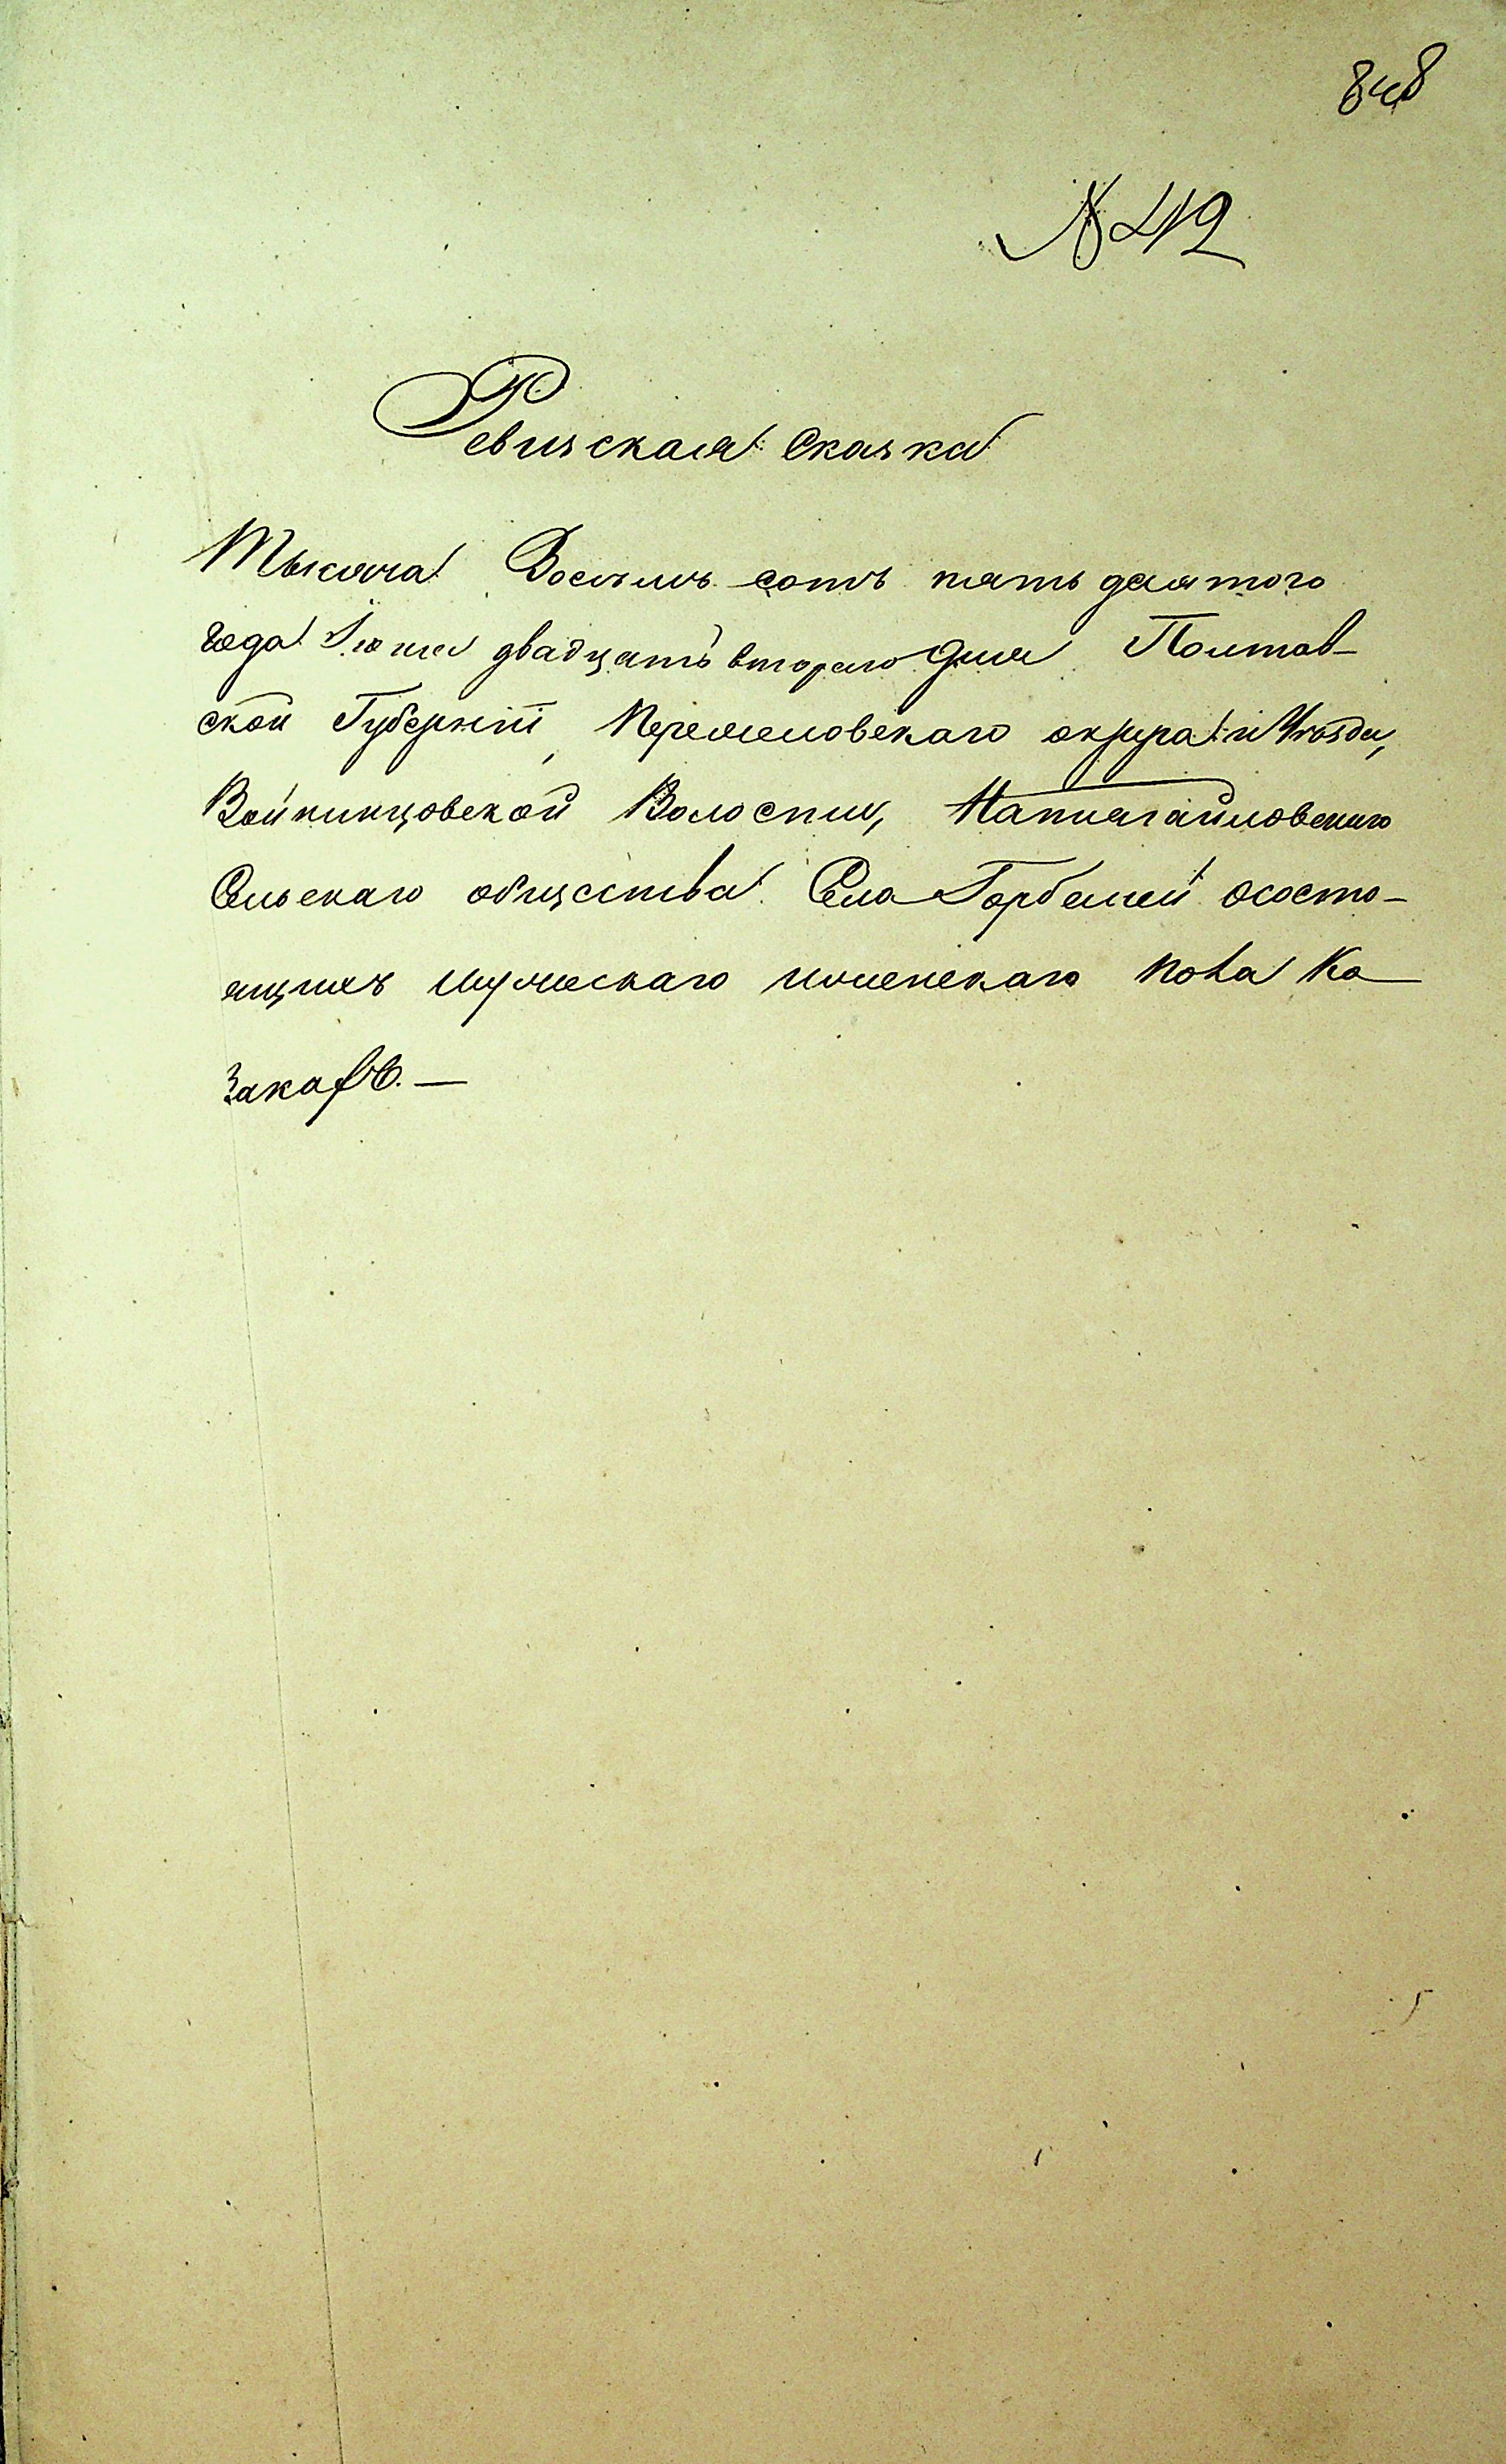 848
№ 42
Ревизская Сказка
Тысяча Восемь сотъ пять десятого
года Іюня двадцать второго дня Полтав-
ской Губерніи, Переяславскаго округа и Уезда,
Войтинцовской Волости,
Сельскаго общества Села Горбаней о состо-
ящихъ мужескаго и женскаго пола Ка
заковъ. —